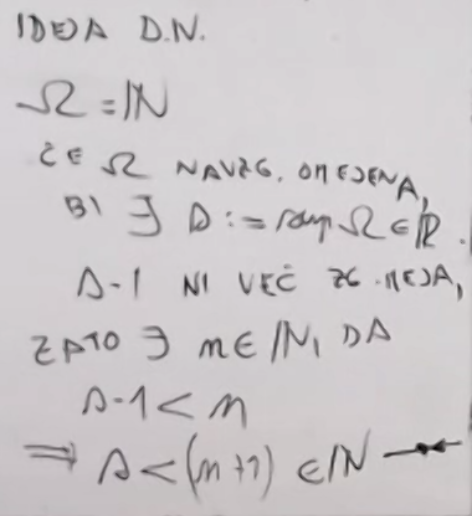 IDEJA D.N.
Ω = ℕ
ČE Ω NAVZG. OMEJENA,
BI ∃ s := sup Ω ∈ ℝ.
s-1 NI VEČ ZG. MEJA,
ZATO ∃ m ∈ ℕ, DA
s-1 < m
⇒ s < (m+1) ∈ ℕ →←